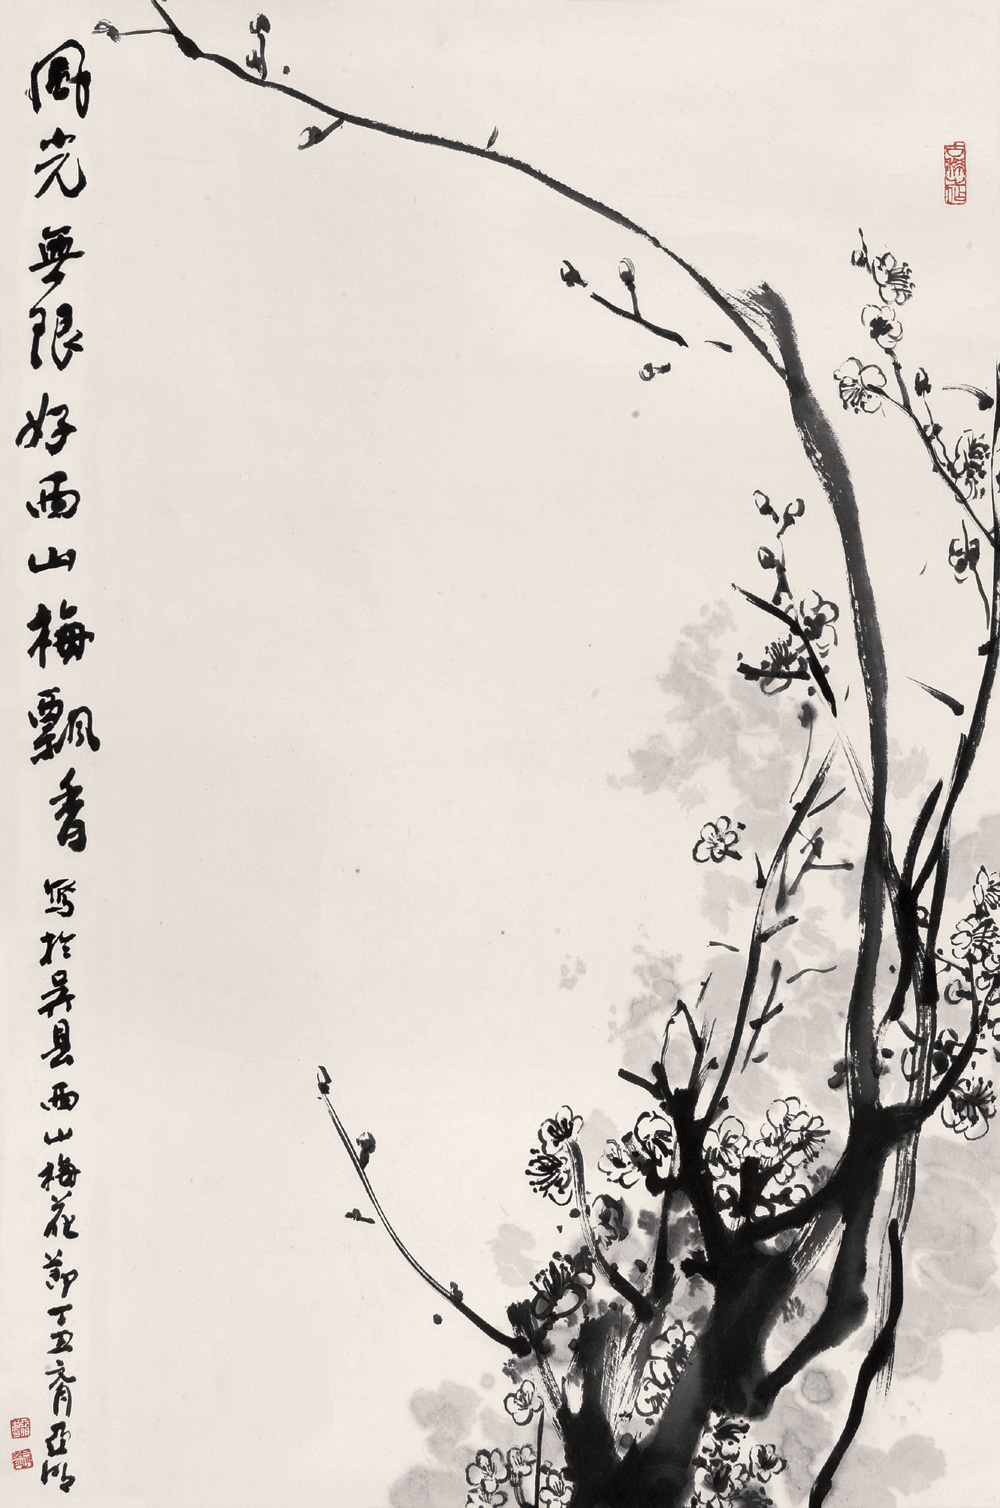 風光無限好西山梅飄香
写於吴县西山梅花節丁丑亞明